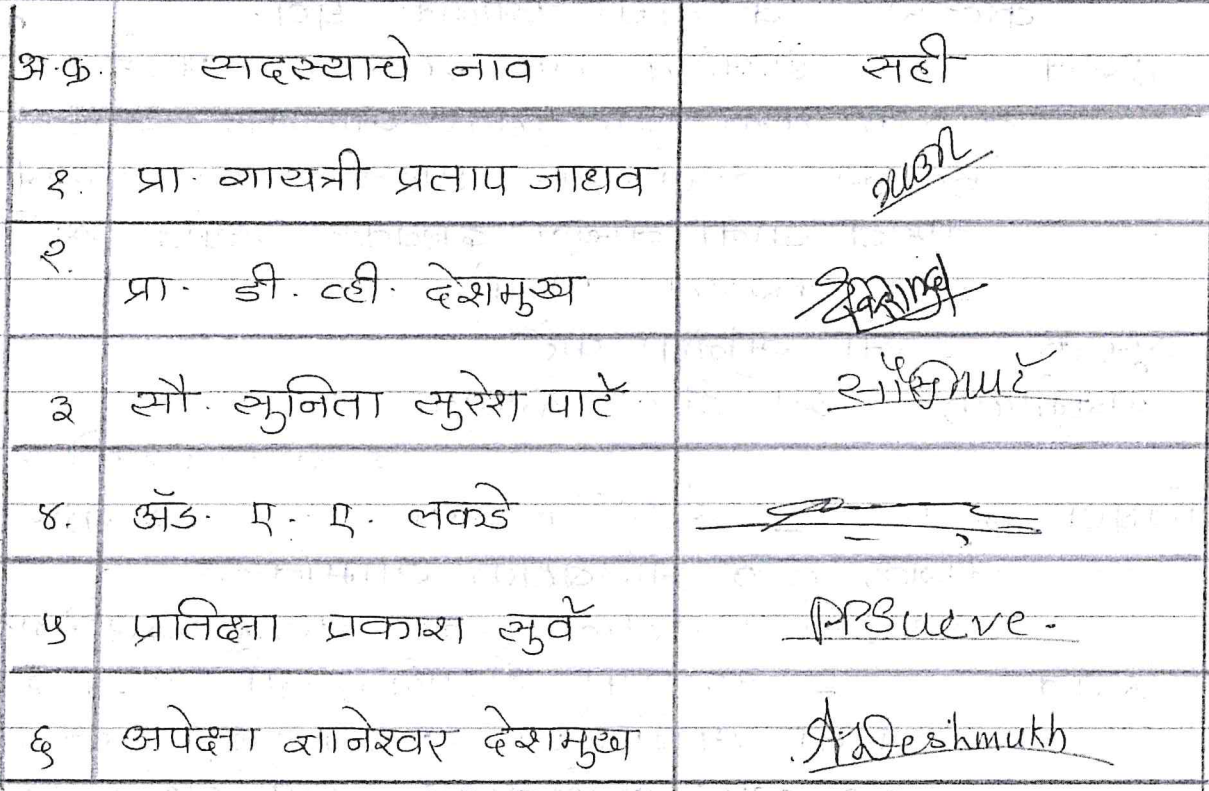 अ.क्र. सदस्याचे नाव सही
१. प्रा. गायत्री प्रताप जाधव
२. प्रा. डी. व्ही. देशमुख
३ सौ. सुनिता सुरेश पाटे
४. ॲड. ए. ए. लकडे
५ प्रतिक्षा प्रकाश सुर्वे PPSurve.
६ अपेक्षा ज्ञानेश्वर देशमुख A.Deshmukh